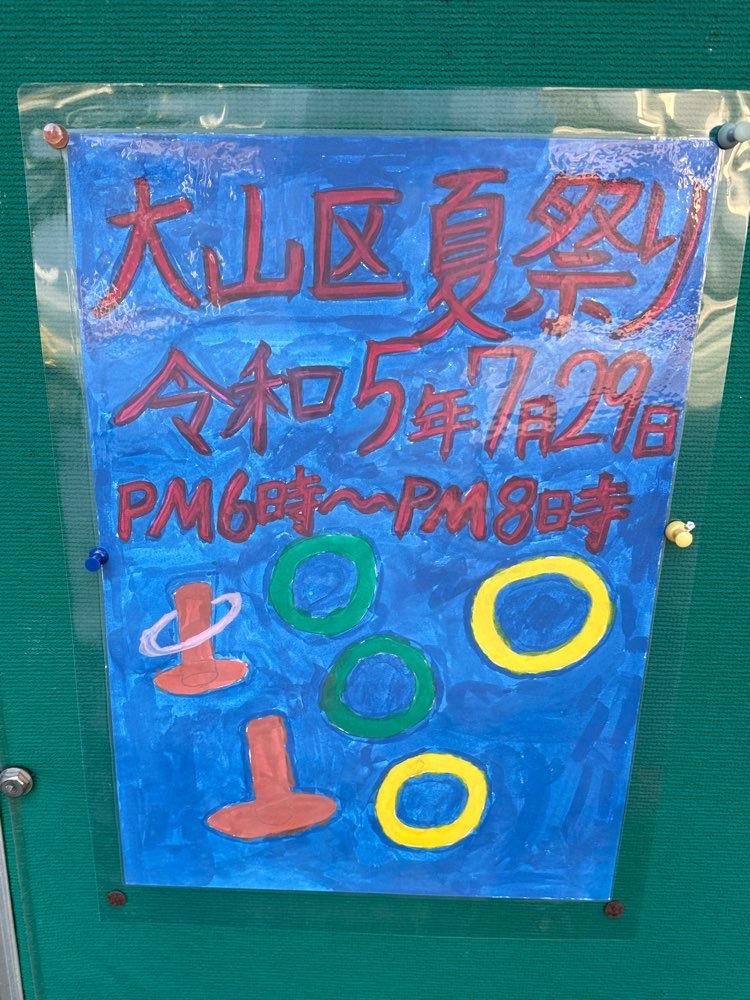 大山区夏祭り
令和5年7月29日
PM6時〜PM8時